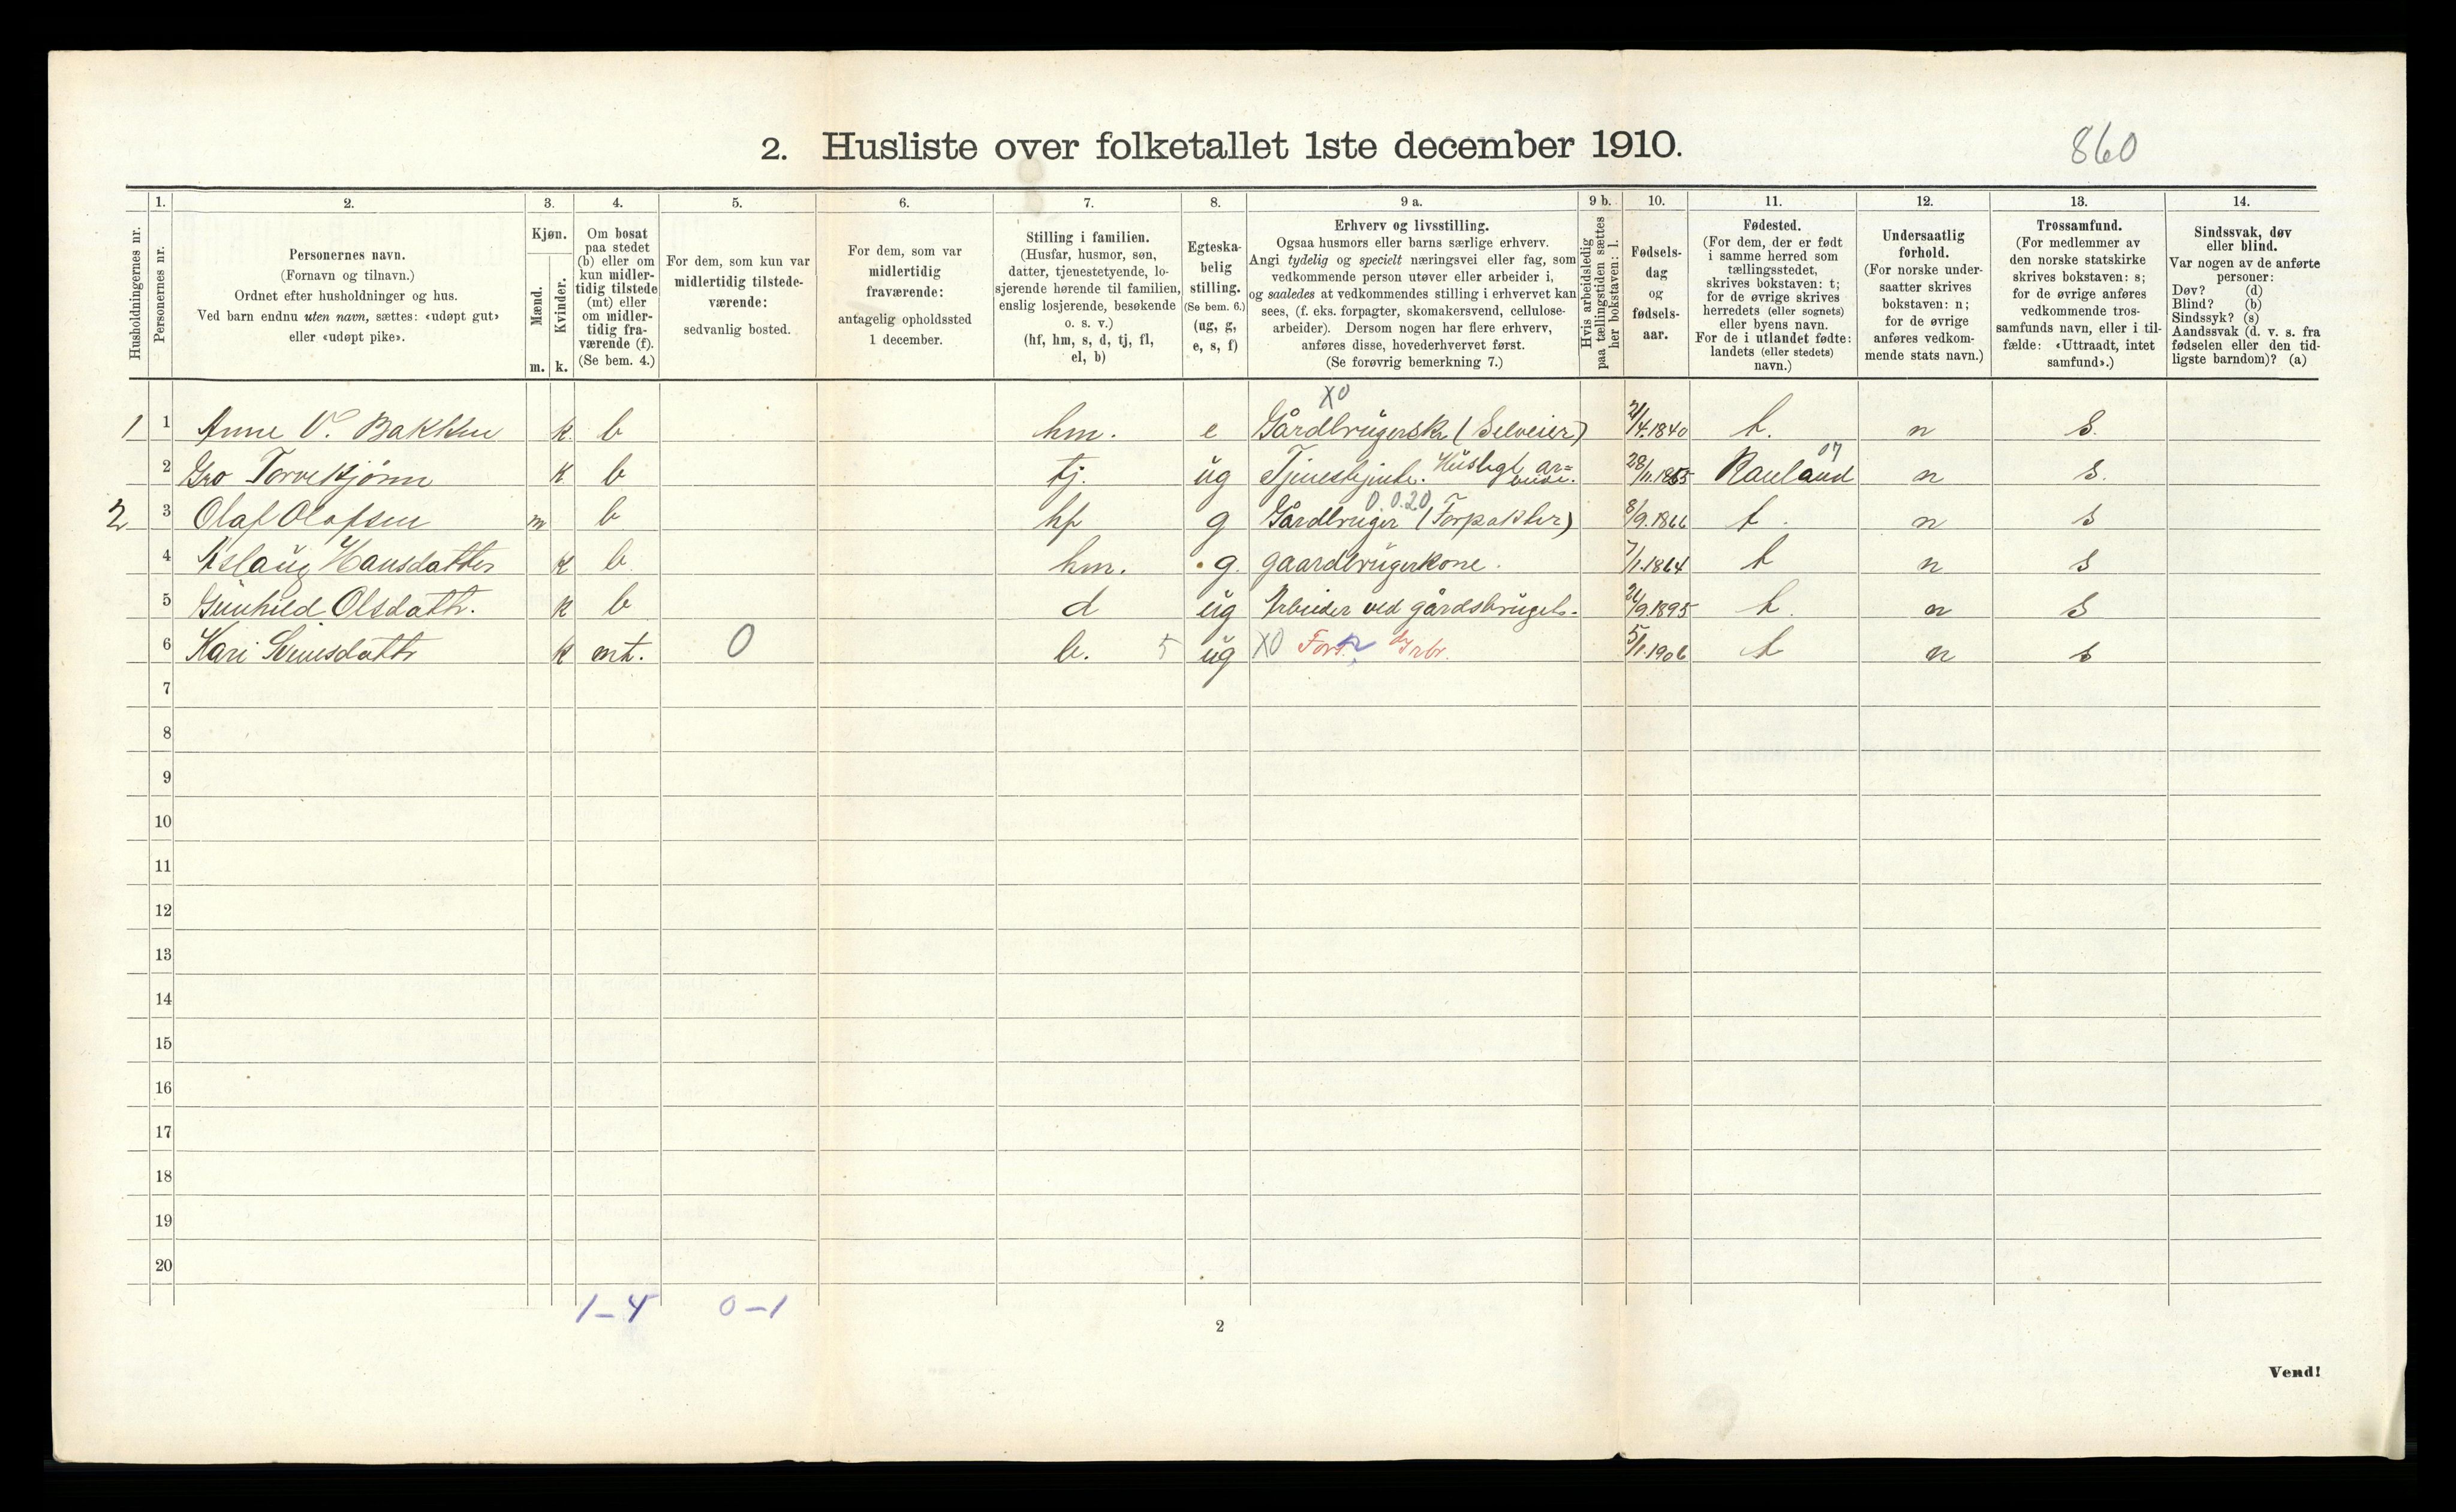 2. Husliste over folketallet 1ste december 1910.
860
Husholdningernes nr.
1.
Personernes nr.
2.
Personernes navn.
(Fornavn og tilnavn.)
Ordnet efter husholdninger og hus.
Ved barn endnu uten navn, sættes: «udøpt gut»
eller «udøpt pike».
3.
Kjøn.
Mænd.
Kvinder.
m. k.
4.
Om bosat
paa stedet
(b) eller om
kun midler-
tidig tilstede
(mt) eller
om midler-
tidig fra-
værende (f).
(Se bem. 4.)
5.
For dem, som kun var
midlertidig tilstede-
værende:
sedvanlig bosted.
6.
For dem, som var
midlertidig
fraværende:
antagelig opholdssted
1 december.
7.
Stilling i familien.
(Husfar, husmor, søn,
datter, tjenestetyende, lo-
sjerende hørende til familien,
enslig losjerende, besøkende
o. s. v.)
(hf, hm, s, d, tj, fl,
el, b)
8.
Egteska-
belig
stilling.
(Se bem. 6.)
(ug, g,
e, s, f)
9 a.
Erhverv og livsstilling.
Ogsaa husmors eller barns særlige erhverv.
Angi tydelig og specielt næringsvei eller fag, som
vedkommende person utøver eller arbeider i,
og saaledes at vedkommendes stilling i erhvervet kan
sees, (f. eks. forpagter, skomakersvend, cellulose-
arbeider). Dersom nogen har flere erhverv,
anføres disse, hovederhvervet først.
(Se forøvrig bemerkning 7.)
9 b.
Hvis arbeidsledig
paa tællingstiden sættes
her bokstaven: l.
10.
Fødsels-
dag
og
fødsels-
aar.
11.
Fødested.
(For dem, der er født
i samme herred som
tællingsstedet,
skrives bokstaven: t;
for de øvrige skrives
herredets (eller sognets)
eller byens navn.
For de i utlandet fødte:
landets (eller stedets)
navn.)
12.
Undersaatlig
forhold.
(For norske under-
saatter skrives
bokstaven: n;
for de øvrige
anføres vedkom-
mende stats navn.)
13.
Trossamfund.
(For medlemmer av
den norske statskirke
skrives bokstaven: s;
for de øvrige anføres
vedkommende tros-
samfunds navn, eller i til-
fælde: «Uttraadt, intet
samfund».)
14.
Sindssvak, døv
eller blind.
Var nogen av de anførte
personer:
Døv? (d)
Blind? (b)
Sindssyk? (s)
Aandssvak (d. v. s. fra
fødselen eller den tid-
ligste barndom)? (a)
X0
1 1 Anne V. Bakken k b hm. e Gårdbrugersk (Selveier) 21/4.1840 t. n s.
07
2 Gro Torvekjönn k b tj. ug Tjenestejente. Husligt ar= 28/11.1865 Rauland n s.
0.0.20
2 3 Olaf Olafsen m b hf g Gårdbruger (Forpakter) 8/9.1866 t. n s
4 Aslaug Hansdatter k b. hm. g. gaardbrugerkone. 7/1.1864 t n s
5 Gunhild Olsdatt. k b d ug Arbeider ved gårdsbruget. 21/9.1895 t. n s
6 Kari k mt. 0 b. 5 ug X0 5/1.1906 t n s
7
8
9
10
11
12
13
14
15
16
17
18
19
20
1-4 0-1
2
Vend!